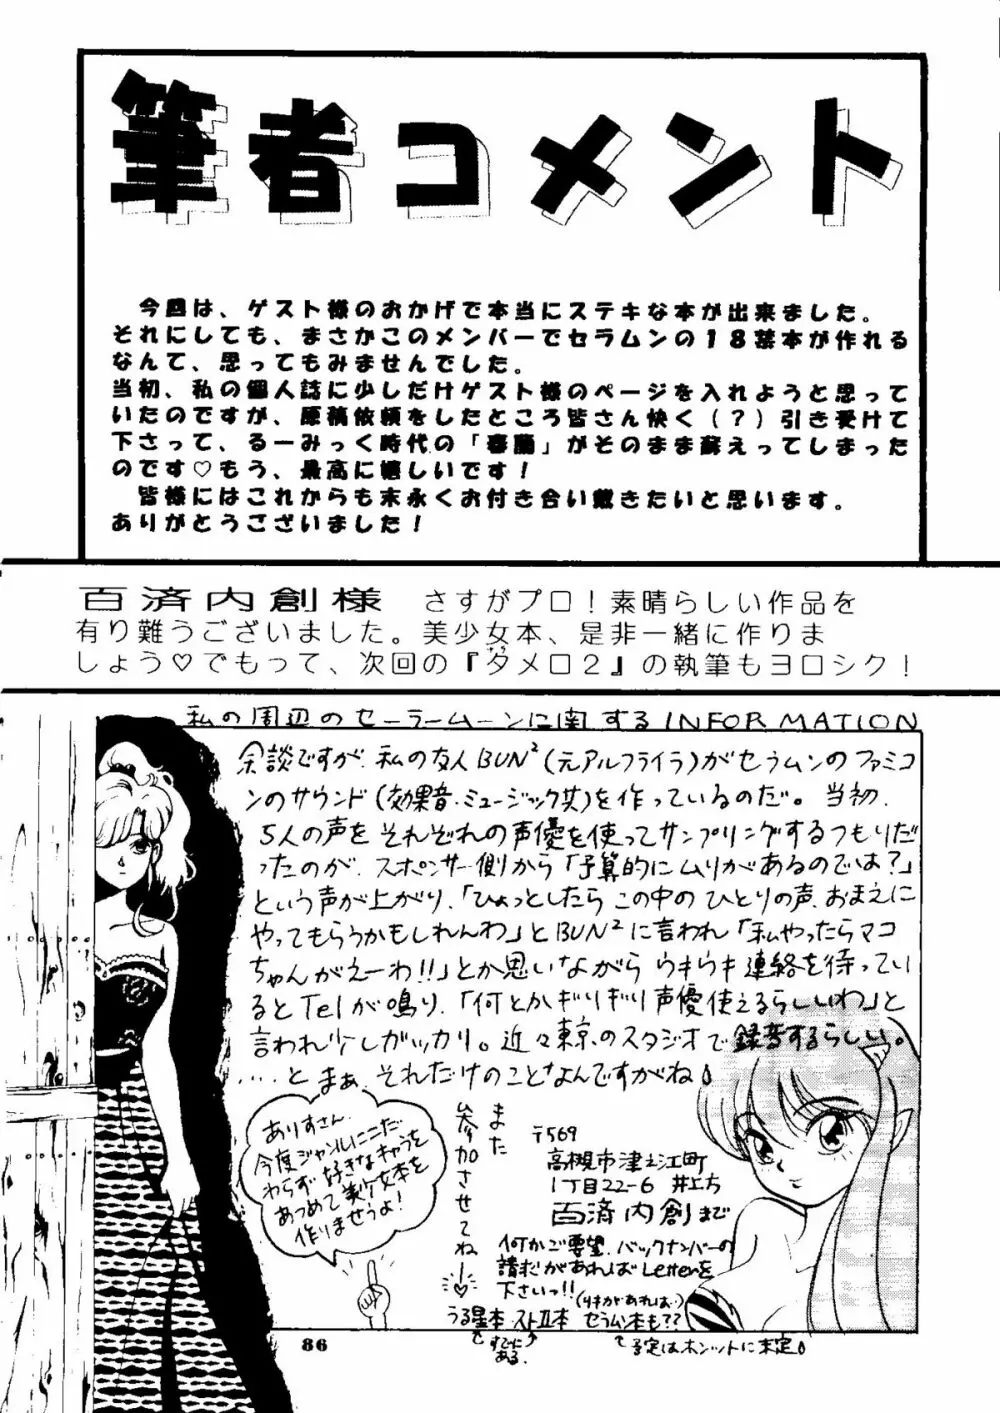 筆者コメント
今回は、ゲスト様のおかげで本当にステキな本が出来ました。
それにしても、まさかこのメンバーでセラムンの18禁本が作れる
なんて、思ってもみませんでした。
当初、私の個人誌に少しだけゲスト様のページを入れようと思って
いたのですが、原稿依頼をしたところ皆さん快く(?)引き受けて
下さって、るーみっく時代の「春蘭」がそのまま蘇えってしまった
のです♡もう、最高に嬉しいです!
皆様にはこれからも末永くお付き合い戴きたいと思います。
ありがとうございました!
百済内創様 さすがプロ!素晴らしい作品を
有り難うございました。美少女本、是非一緒に作りま
しょう♡でもって、次回の『タメロ2』の執筆もヨロシク!
私の周辺のセーラームーンに関するINFORMATION
余談ですが、私の友人BUN²(元アルフライラ)がセラムンのファミコ
ンのサウンド(効果音・ミュージック共)を作っているのだ。当初、
5人の声をそれぞれの声優を使ってサンプリングするつもりだ
ったのが、スポンサー側から「予算的にムリがあるのでは?」
という声が上がり、「ひょっとしたらこの中のひとりの声、おまえに
やってもらうかもしれんわ」とBUN²に言われ「私やったらマコ
ちゃんがえーわ!!」とか思いながらウキウキ連絡を待ってい
るとTelが鳴り、「何とかギリギリ声優使えるらしいわ」と
言われ少しガッカリ。近々東京のスタジオで録音するらしい。
……とまぁ、それだけのことなんですがね
ありすさん、
今度ジャンルにこだ
わらず好きなキャラを
あつめて美少女本を
作りませうよ!
また
参加させてねー♡
〒569
高槻市津之江町
1丁目22-6 井上方
百済内創まで
何かご要望、バックナンバーの
請求があればLetterを
下さいっ!!
(リキがあれば…)
うる星本 ストII本 セラムン本も??
すでに
ある。
予定はホンットに未定
86